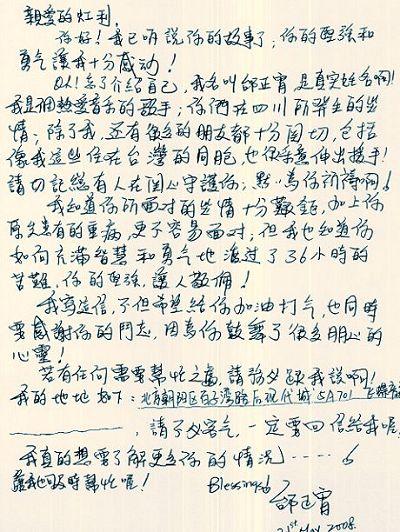 親愛的灯利,
你好！我已听說你的故事了，你的堅強和
勇气讓我十分感动！
Oh! 忘了介绍自己，我名叫邰正宵，是真实姓名啊！
我是個熱愛音乐的歌手，你們在四川所發生的
事情，除了我，还有很多的朋友都十分関切，包括
像我這些住在台灣的同胞，也很乐意伸出援手！
請切記総有人在関心守護你，默默為你祈禱啊！
我知道你所面对的事情十分艱鉅，加上你
原先患有的重病，更不容易面对，但我也知道你
如何充滿智慧和勇气地渡过了36小時的
苦難，你的堅強，讓人敬佩！
我寫這信，不但希望給你加油打气，也同時
要感謝你的鬥志，因為你鼓舞了很多朋友的
心靈！
若有任何需要幫忙之處，請務必跟我說啊！
我的地址如下：北京朝阳区百子灣路后现代城5A701
，請不必客气，一定要回信給我喔，
我真的想要了解更多你的情況......
讓我也及時幫忙喔！ Blessings
邰正宵
21st May 2008.